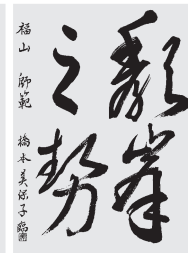 頽峯
之勢
福山 師範 橋本美保子臨